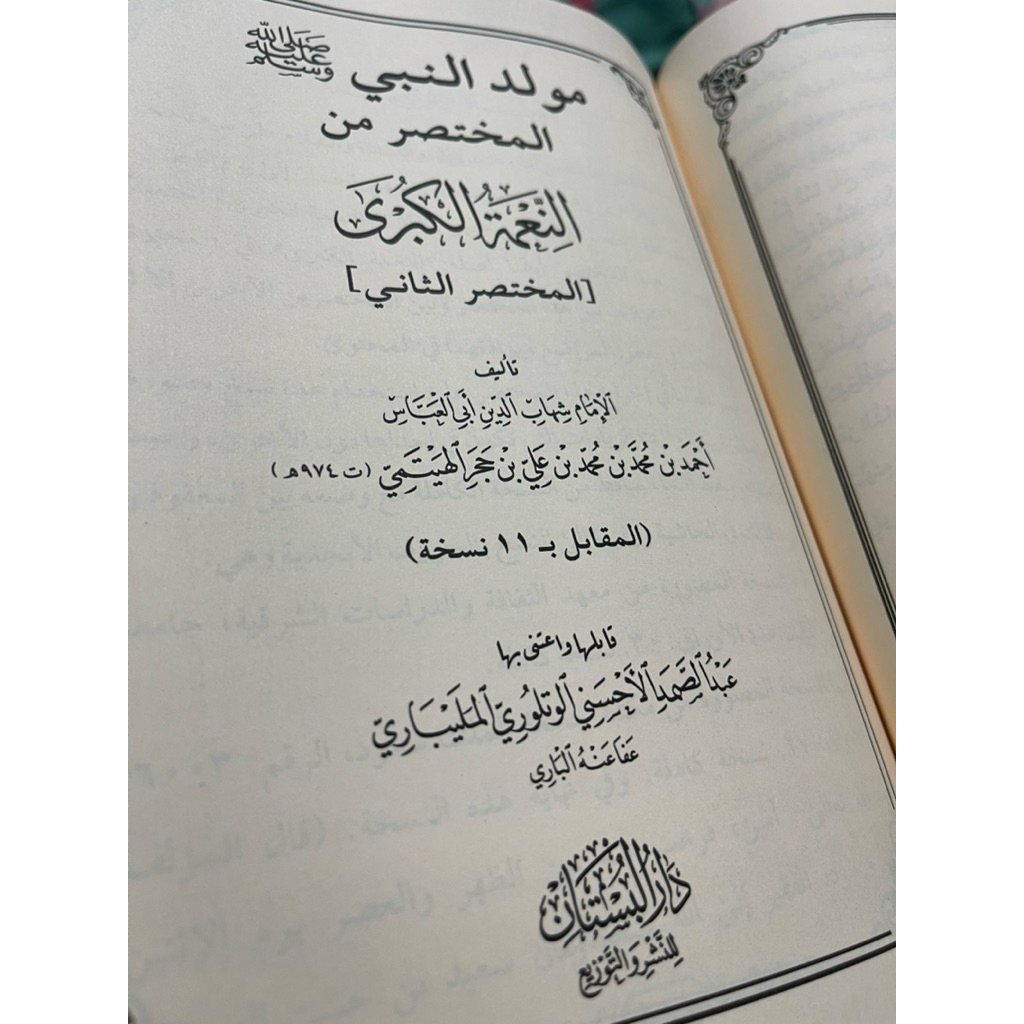 مولد النبي ﷺ
المختصر من
النِّعْمَةُ الْكُبْرَى
[المختصر الثاني]
تأليف
الإِمَامِ شِهَابِ الدِّينِ أَبِي الْعَبَّاسِ
أَحْمَدَ بْنِ مُحَمَّدِ بْنِ مُحَمَّدِ بْنِ عَلِيِّ بْنِ حَجَرٍ الْهَيْتَمِيِّ (ت ٩٧٤هـ)
(المقابل بـ ١١ نسخة)
قابلها واعتنى بها
عَبْدُ الصَّمَدِ الْأَحْسَنِي الْوَتْلُورِيّ الْمَلَيْبَارِيّ
عَفَا عَنْهُ الْبَارِي
دَارُ الْبُسْتَانِ
لِلنَّشْرِ وَالتَّوْزِيعِ